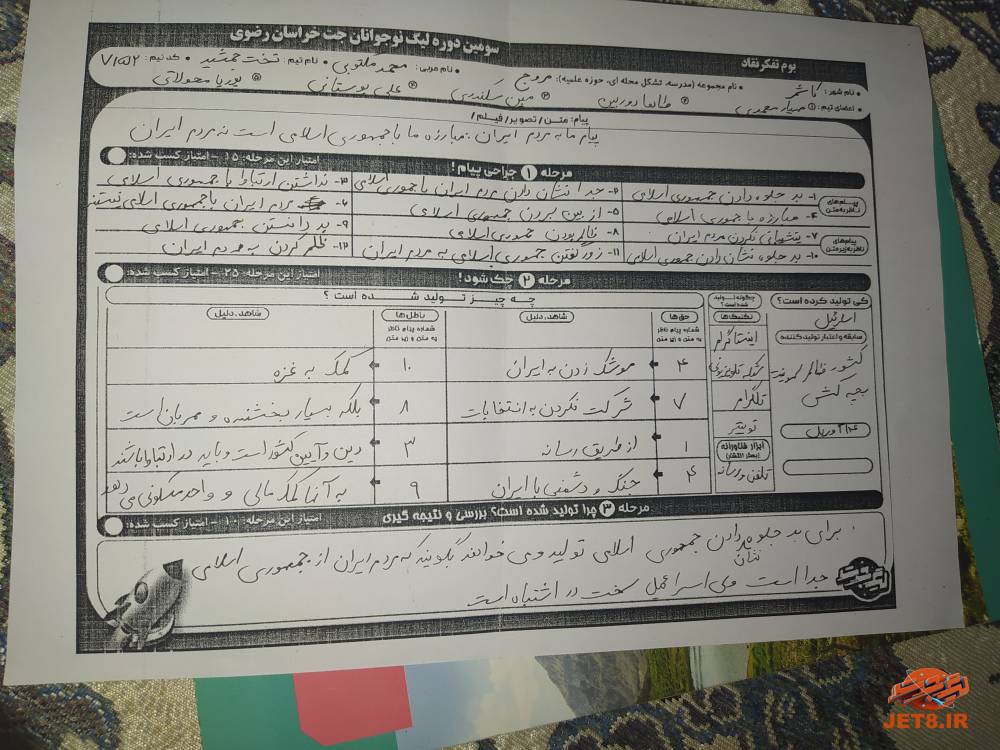 سومین دوره لیگ نوجوانان جت خراسان رضوی
بوم تفکر نقاد
نام شهر: کاشمر • نام مجموعه (مدرسه، تشکل محله ای، حوزه علمیه): مروج • نام مربی: محمد ملتوبی • نام تیم: تخت جمشید • کد تیم: ۷۱۵۲
اعضای تیم: ① مهیار محمدی ② طاها دوربین ③ مبین سکندری ④ علی بوستانی ⑤ پوریا محولاتی
پیام: متن/ تصویر/ فیلم/
پیام ما به مردم ایران: مبارزه ما با جمهوری اسلامی است نه مردم ایران
مرحله ۱ جراحی پیام!
امتیاز این مرحله: ۱۵ - امتیاز کسب شده:
پیام‌های ناظر به متن
۱- بد جلوه دادن جمهوری اسلامی
۲- جدا نشان دادن مردم ایران با جمهوری اسلامی
۳- نداشتن ارتباط با جمهوری اسلامی
۴- مبارزه با جمهوری اسلامی
۵- از بین بردن جمهوری اسلامی
۶- مردم ایران با جمهوری اسلامی نیستند
پیام‌های ناظر به زیر متن
۷- پشتیبانی نکردن مردم ایران
۸- ظالم بودن جمهوری اسلامی
۹- بد دانستن جمهوری اسلامی
۱۰- بد جلوه نشان دادن جمهوری اسلامی
۱۱- زور گفتن جمهوری اسلامی به مردم ایران
۱۲- ظلم کردن به مردم ایران
مرحله ۲ چک شود!
امتیاز این مرحله: ۲۵ - امتیاز کسب شده:
کی تولید کرده است؟
اسرائیل
سابقه و اعتبار تولید کننده
کشور ظالم
بچه کش
چگونه تولید شده است؟
تکنیک‌ها
اینستاگرام
شبکه تلویزیونی
تلگرام
توییتر
ابزار فناورانه (بستر انتشار)
تلفن و رسانه
چه چیز تولید شده است؟
حق‌ها
شماره پیام ناظر به متن و زیر متن
شاهد، دلیل
باطل‌ها
شماره پیام ناظر به متن و زیر متن
شاهد، دلیل
۴ موشک زدن به ایران ۱۰ کمک به غزه
۷ شرکت نکردن به انتخابات ۸ بلکه بسیار بخشنده و مهربان است
۱ از طریق رسانه ۳ دین و آیین کشور است و باید در ارتباط باشند
۴ جنگ و دشمنی با ایران ۹ به آنها کمک مالی و واحد مسکونی می دهد
مرحله ۳ چرا تولید شده است؟ بررسی و نتیجه گیری
امتیاز این مرحله: ۱۰ - امتیاز کسب شده:
برای بد جلوه نشان دادن جمهوری اسلامی تولید و می خواهند بگویند که مردم ایران از جمهوری اسلامی
جدا است ولی اسرائیل سخت در اشتباه است
JET8.IR